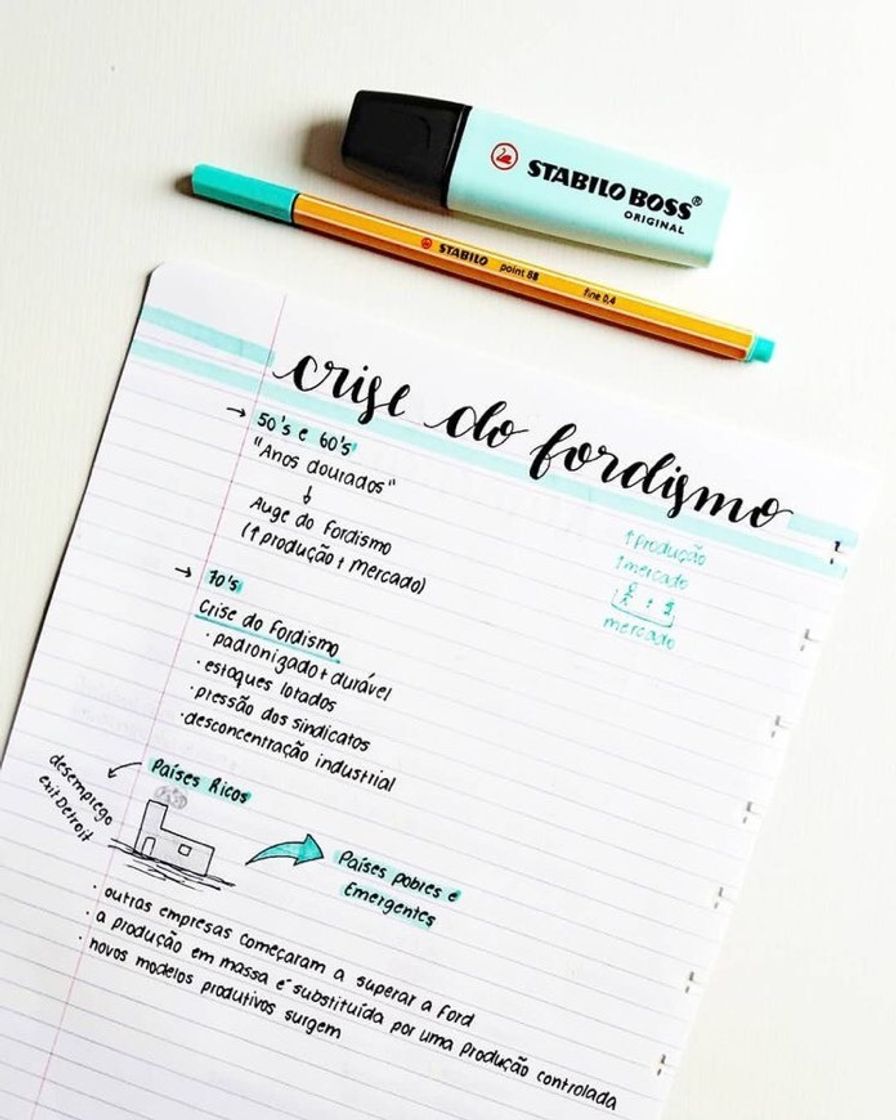 STABILO BOSS®
ORIGINAL
STABILO point 88 fine 0,4
crise do fordismo
→ 50's e 60's
"Anos dourados"
↓
Auge do Fordismo
(↑produção + mercado)
↑produção
↑mercado
mercado
→ 70's
Crise do Fordismo
· padronizado + durável
· estoques lotados
· pressão dos sindicatos
· desconcentração industrial
Países Ricos
desemprego
ex: Detroit
Países pobres e
Emergentes
· outras empresas começaram a superar a Ford
· a produção em massa é substituída por uma produção controlada
· novos modelos produtivos surgem